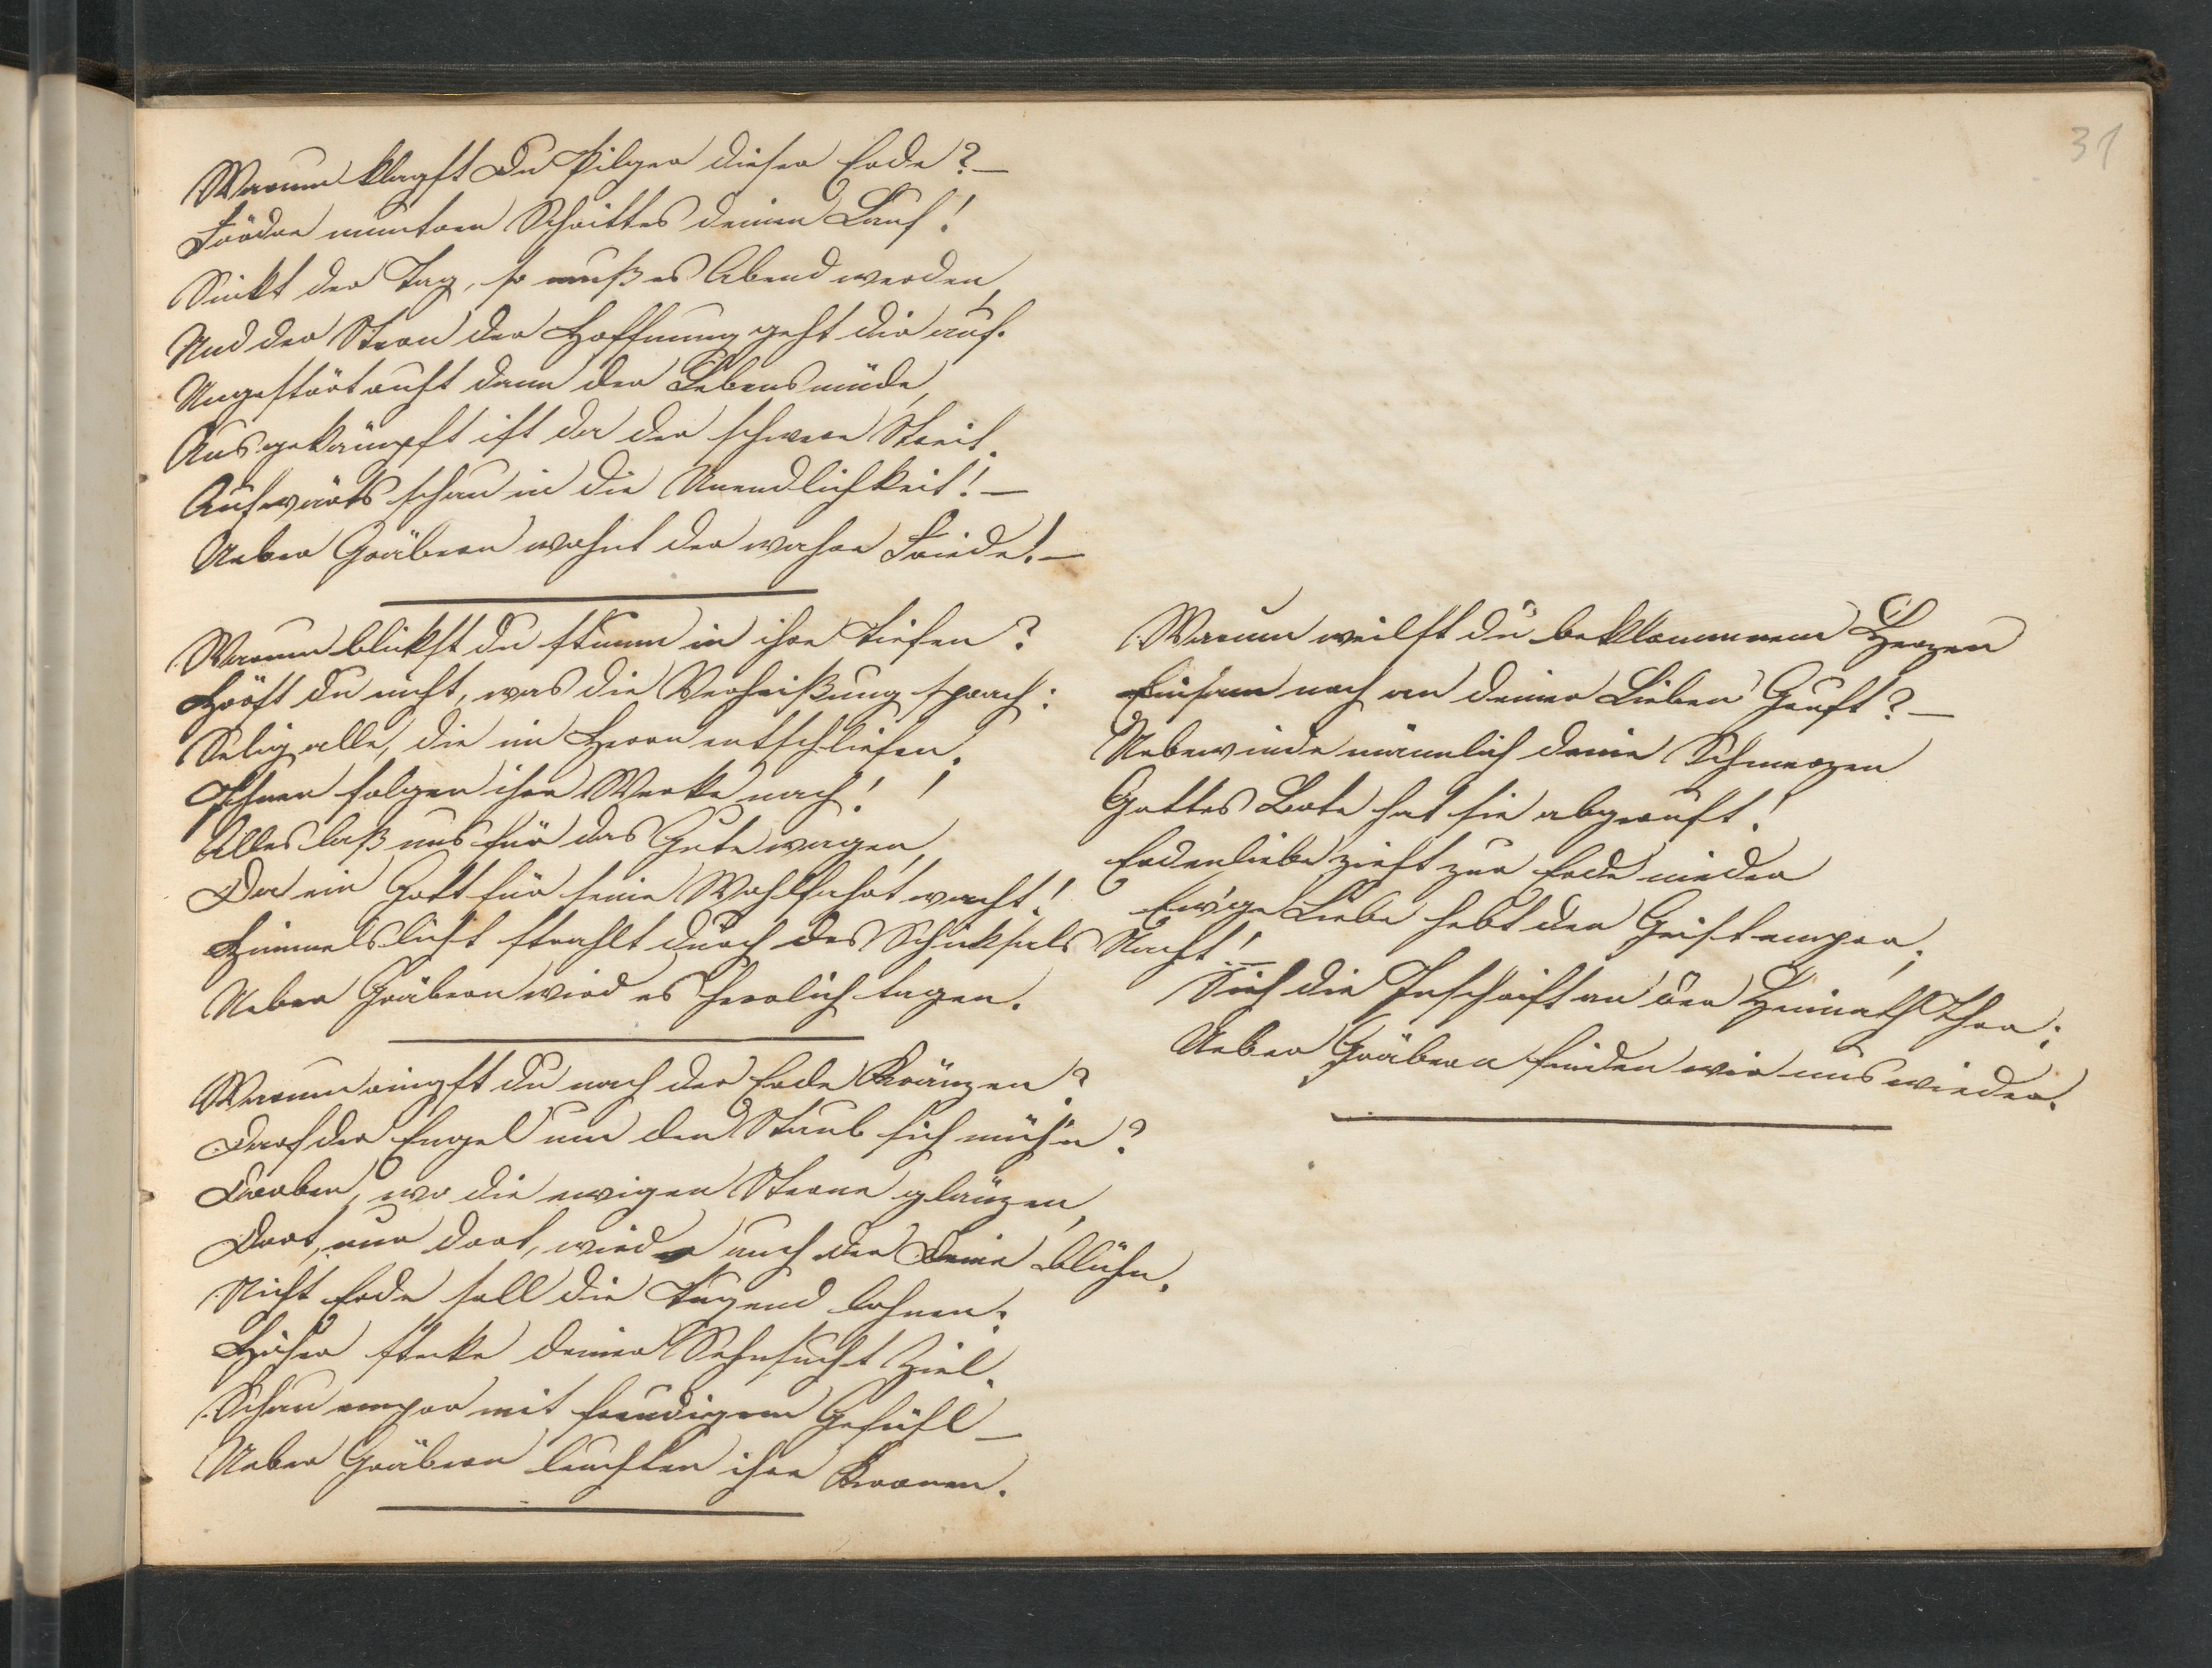 31
Warum klagst Du Pilger dieser Erde? —
Fördre muntren Schrittes deinen Lauf!
Sinkt der Tag, so muß es Abend werden,
Und der Stern der Hoffnung geht dir auf.
Ungestört ruht dann der Lebensmüde,
Ausgekämpft ist da der schwere Streit.
Aufwärts schau in die Unendlichkeit! —
Ueber Gräbern wohnt der wahre Friede! —
Warum blickst du stumm in ihre Tiefen?
Hörst du nicht, was die Verheißung sprach:
Selig alle, die im Herrn entschliefen,
Ihnen folgen ihre Werke nach!
Alles laß uns für das Gute wagen,
Da ein Gott für seine Wohlfahrt wacht!
Himmelslicht strahlt durch des Schicksals Nacht! —
Ueber Gräbern wird es herrlich tagen.
Warum ringst du nach der Erde Kränzen?
Darf der Engel um den Staub sich müh'n?
Droben, wo die ewigen Sterne glänzen,
Dort, nur dort, wird auch der Deine blühn.
Nicht Erde soll die Tugend lohnen.
Höher stecke deiner Sehnsucht Ziel.
Schau empor mit freudigem Gefühl —
Ueber Gräbern leuchten ihre Kronen.
Warum weilst du beklommnem Herzen
Einsam noch an deiner Lieben Gruft? —
Ueberwinde männlich deine Schmerzen
Gottes Bote hat sie abgeruft!
Erdenliebe zieht zur Erde nieder
Ew'ge Liebe hebt den Geist empor,
Sieh die Inschrift an der Heimath Thor:
Ueber Gräbern finden wir uns wieder.